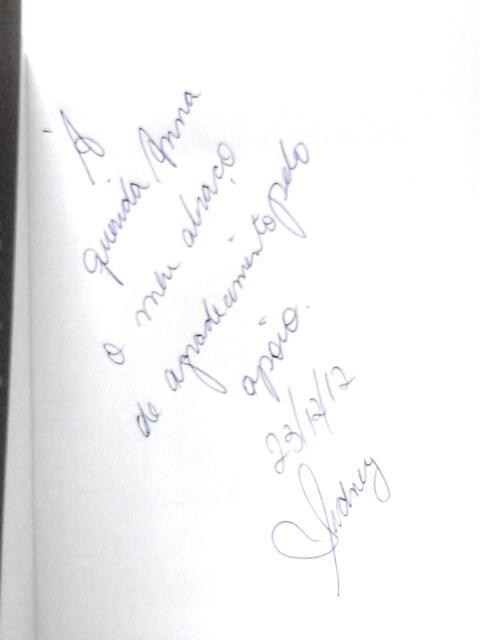 À
querida Anna
o meu abraço
de agradecimento pelo
apoio.
23/12/12
Sidney